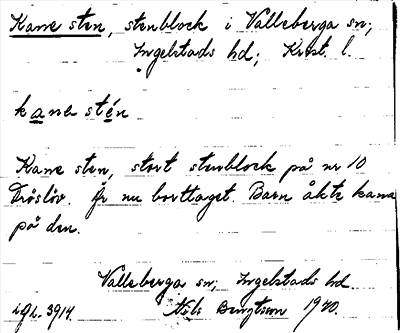 Kane sten, stenblock i Valleberga sn;
Ingelstads hd; Krist. l.
kanestén
Kane sten, stort stenblock på nr 10
Fröslöv. Är nu borttaget. Barn åkte kana
på den.
Valleberga sn; Ingelstads hd.
Nils Bengtsson 1920.